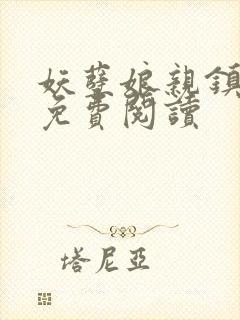 妖孽娘親鎮
免費閱讀
塔尼亞